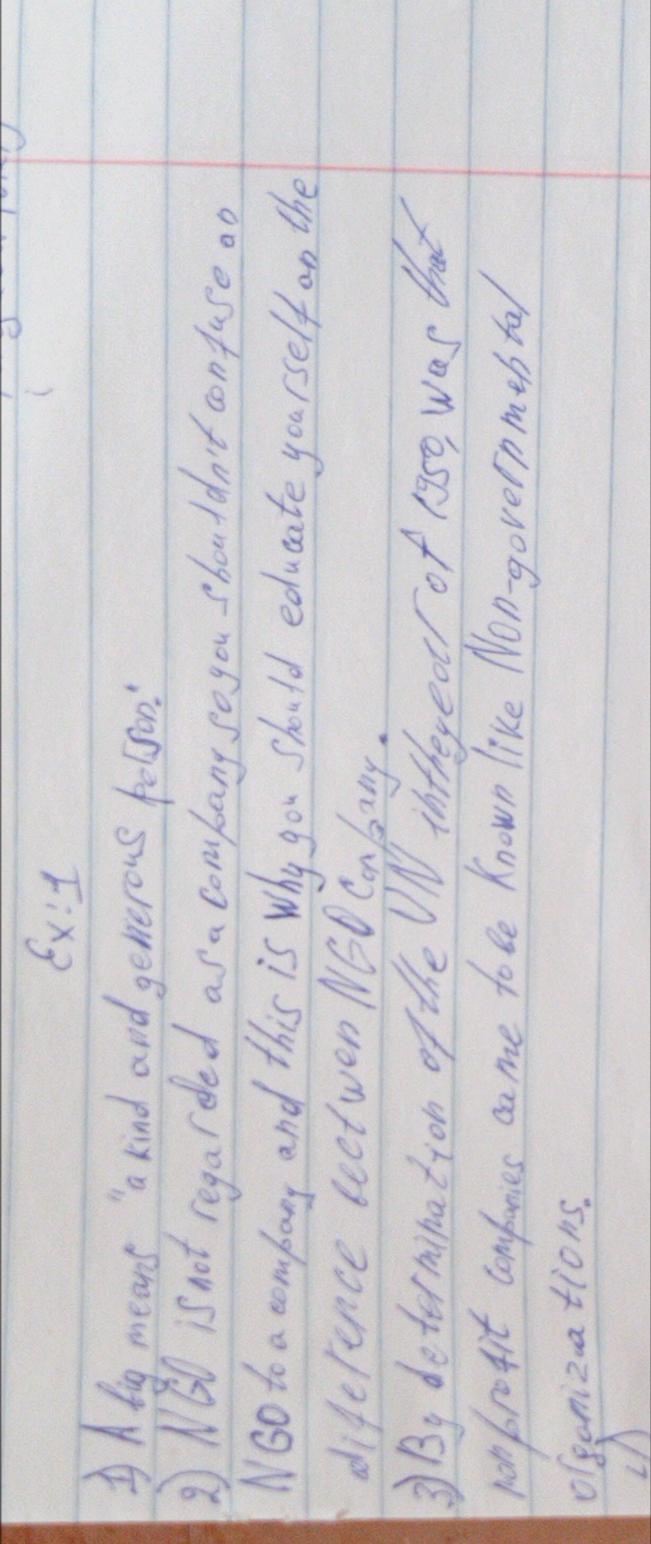 Ex: 1
1) A big means "a kind and generous person."
2) NGO is not regarded as a company so you shouldn't confuse an
NGO to a company and this is why you should educate yourself on the
diference bectwen NGO Company.
3) By determination of the UN in the year of 1950, was that
nonprofit companies came to be known like Non-governmental
organizations.